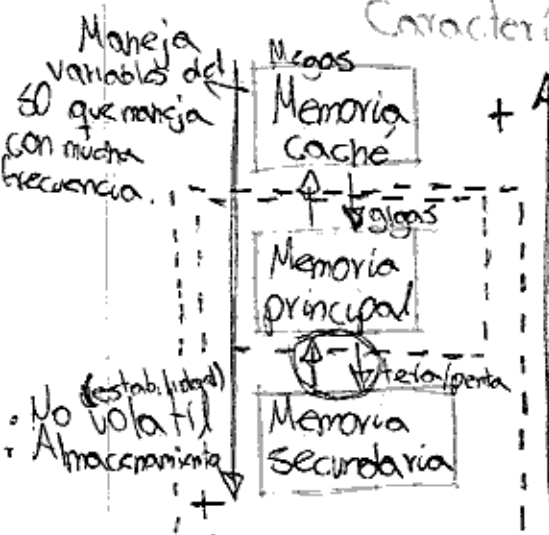 Caracterí
Maneja
variables del
SO que maneja
con mucha
frecuencia.
Megas
Memoria
caché
+ A
gigas
Memoria
principal
tera/penta
(estabilidad)
. No volatil
. Almacenamiento
+
Memoria
secundaria